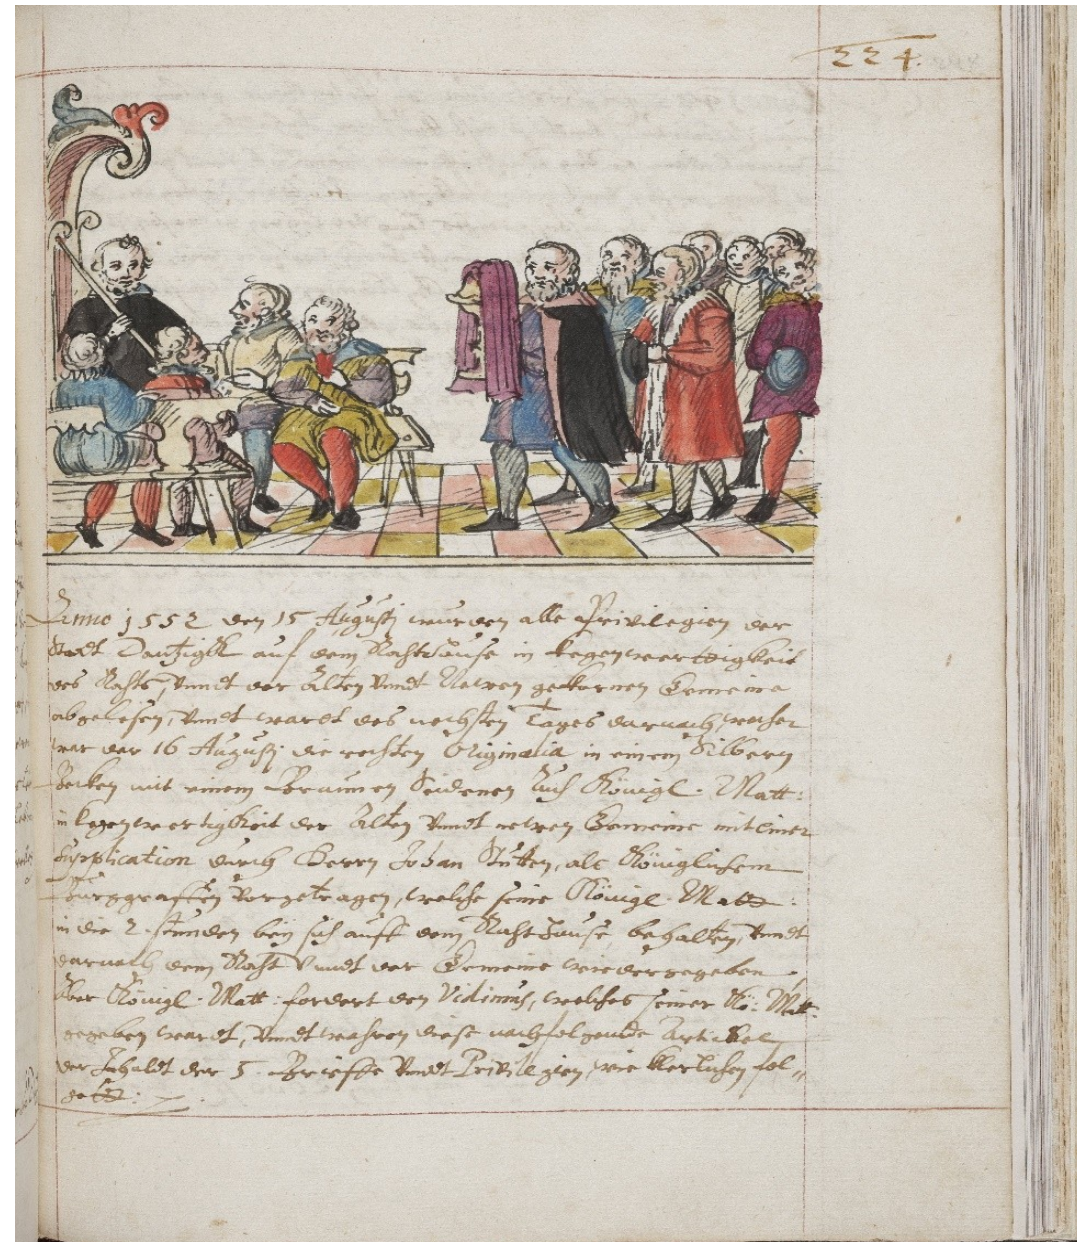 224.
Anno 1552 den 15 Augusti wurden alle Privilegien der
Stadt Dantzigk auf dem Rahthause in kegenwertigkeit
des Rahts, Vnndt der Alten Vnndt Newen gekornen Gemeine
abgelesen, Vnndt wardt des nechsten Tages darnach, welcher
war der 16 Augusti die rechten Originalia in einem Silbern
Becken mit einem Braunen Seidenen Tuch Königl. Matt:
in kegenwertigkeit der Alten Vnndt newen Gemeine mit einer
Supplication durch Herrn Johan Stutten, als Königlichem
Burggraffen Vorgetragen, welche seine Königl. Matt:
in die 2. stunden beÿ sich auff dem Rahthause behalten, Vnndt
darnach dem Raht Vnndt der Gemeine wiedergegeben.
Aber Königl. Matt: fordert den Vidimus, welches seiner Kö: Matt.
gegeben wardt, Vnndt wahren diese nachfolgende Artickel
der Inhaldt der 5. Brieffe Vnndt Privilegien, wie klerlichen fol„
gett: